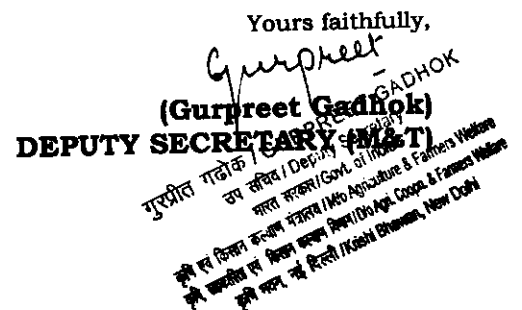 Yours faithfully,
Gurpreet
(Gurpreet Gadhok)
DEPUTY SECRETARY (M&T)
गुरप्रीत गढोक / GURPREET GADHOK
उप सचिव / Deputy Secretary
भारत सरकार/Govt. of India
कृषि एवं किसान कल्याण मंत्रालय / M/o Agriculture & Farmers Welfare
कृषि, सहकारिता एवं किसान कल्याण विभाग/D/o Agri. Coopn. & Farmers Welfare
कृषि भवन, नई दिल्ली /Krishi Bhawan, New Delhi